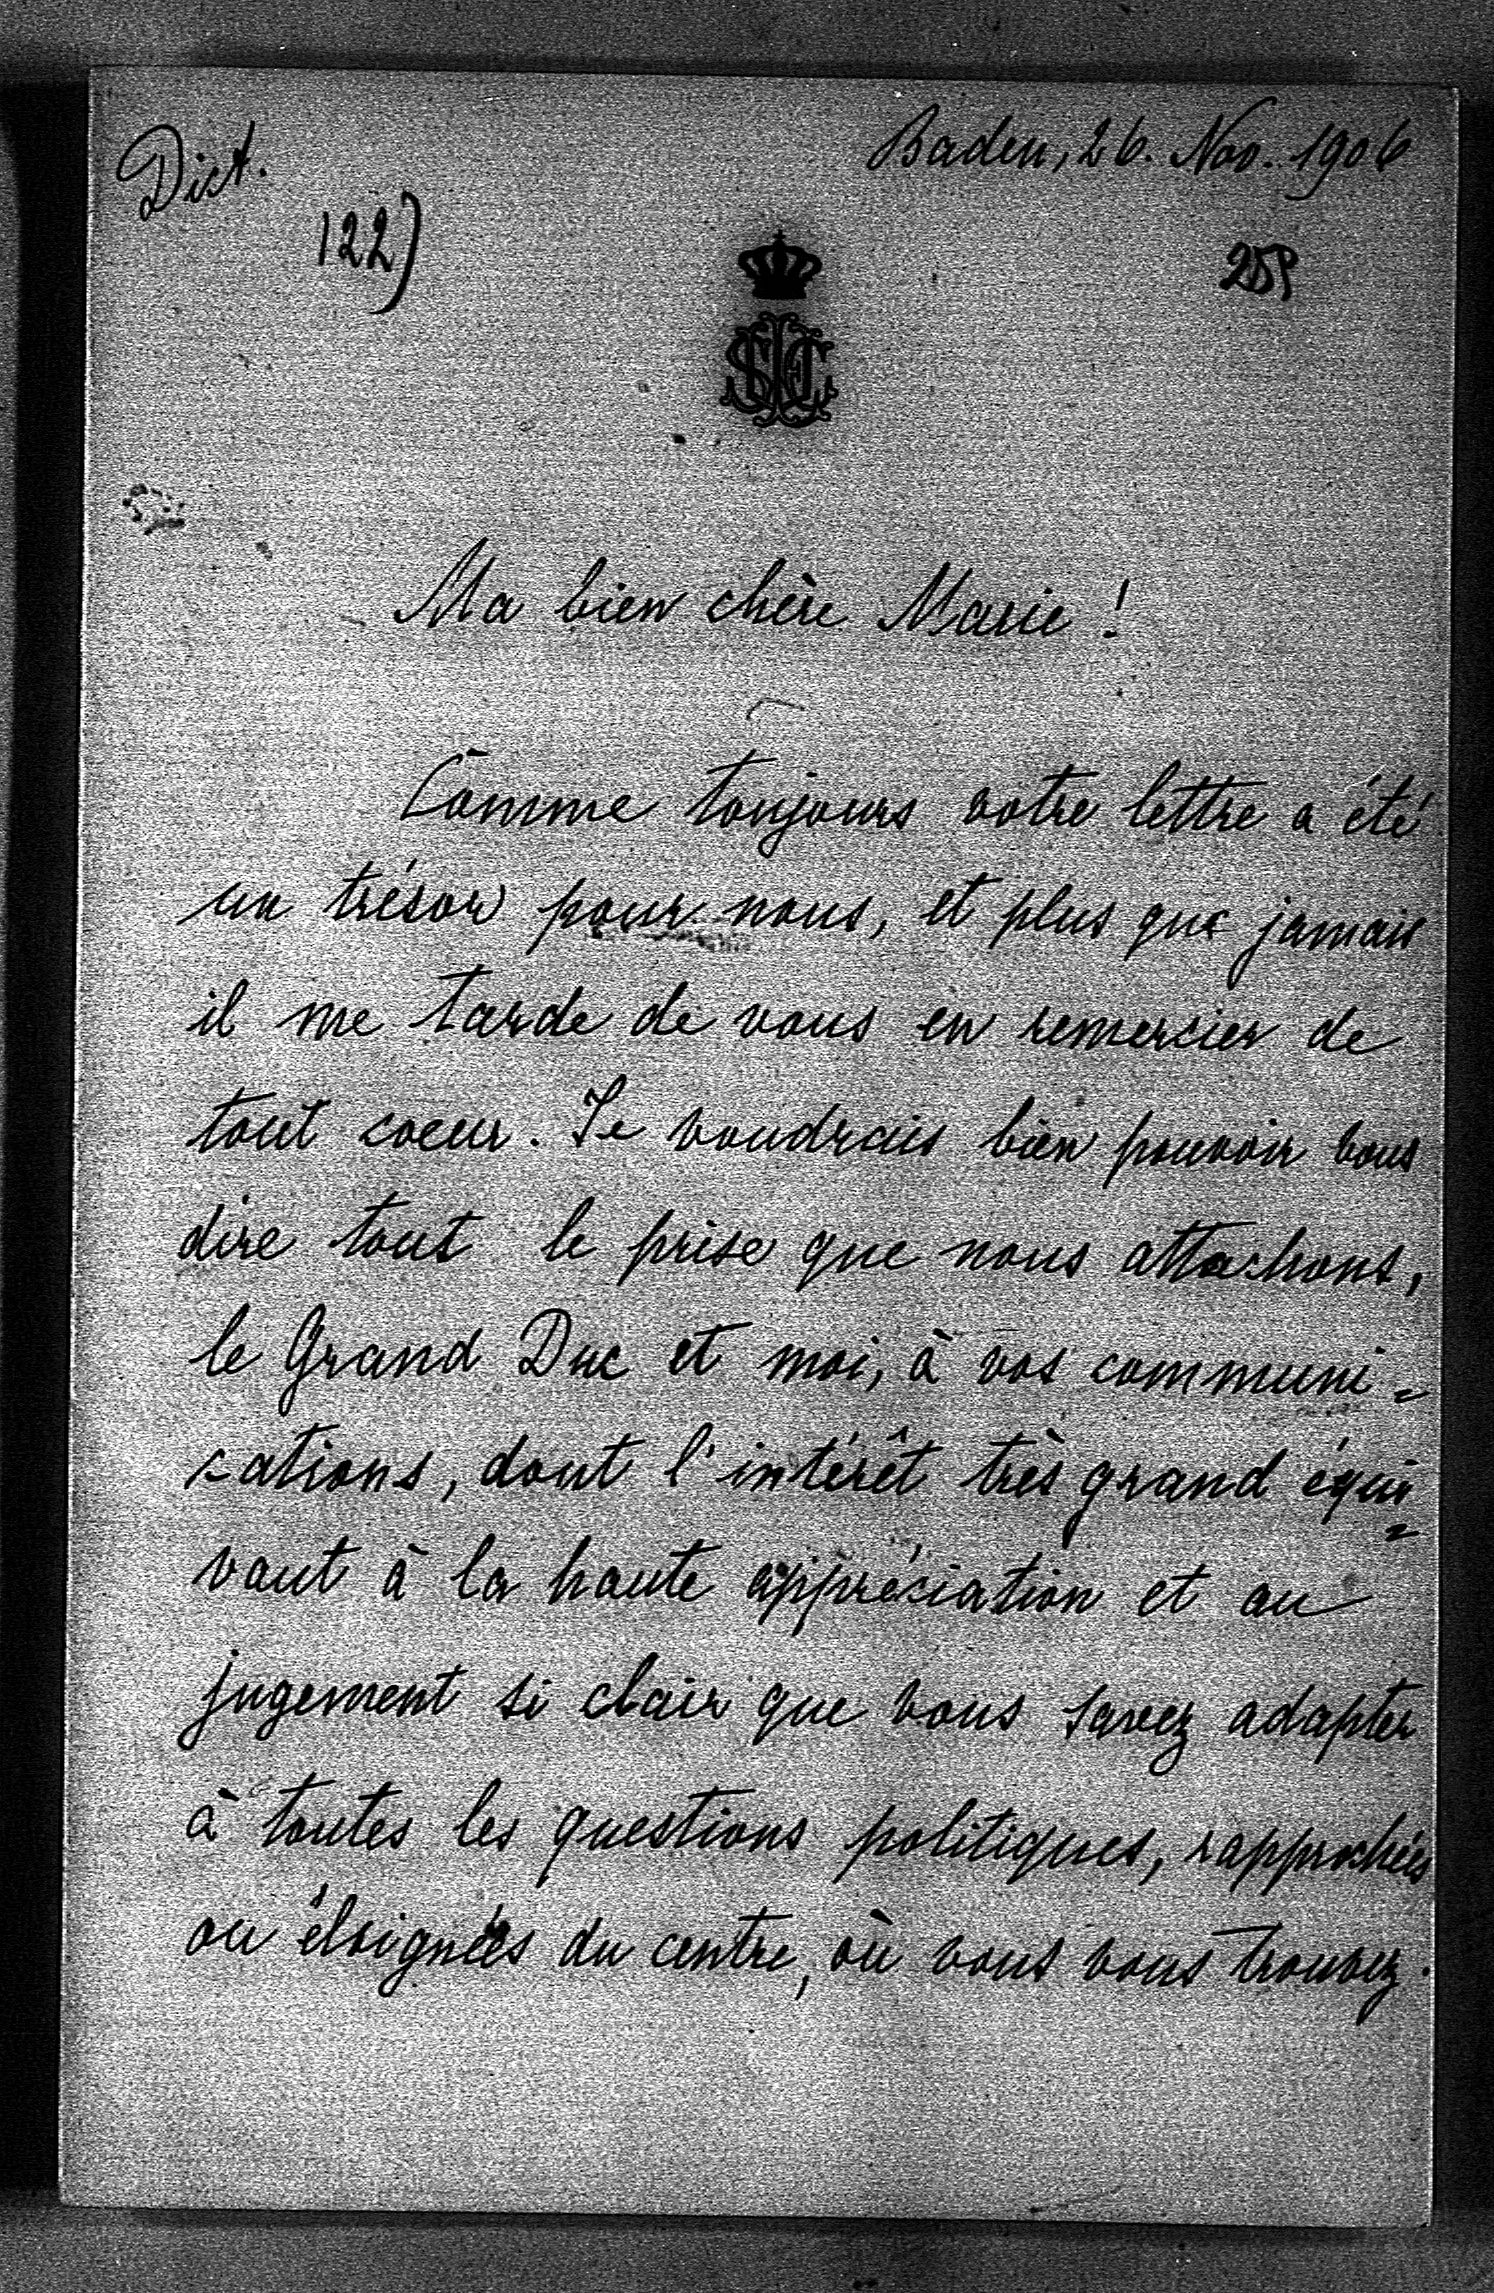 Dict.
Baden, 26. Nov. 1906
122)
259
Ma bien chère Marie !
Comme toujours votre lettre a été
un trésor pour nous, et plus que jamais
il me tarde de vous en remercier de
tout coeur. Je voudrais bien pouvoir vous
dire tout le prise que nous attachons,
le Grand Duc et moi, à vos communi=
cations, dont l'intérêt très grand équi=
vaut à la haute appréciation et au
jugement si clair que vous savez adapter
à toutes les questions politiques, rapprochées
ou éloignées du centre, où vous vous trouvez.